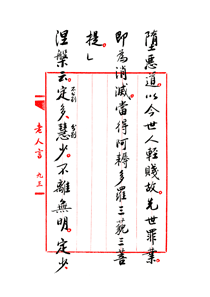 墮惡道。以今世人輕賤故。先世罪業。
即為消滅。當得阿耨多羅三藐三菩
提。」
涅槃云。定多。慧少。不離無明。定少。
老人言 九三